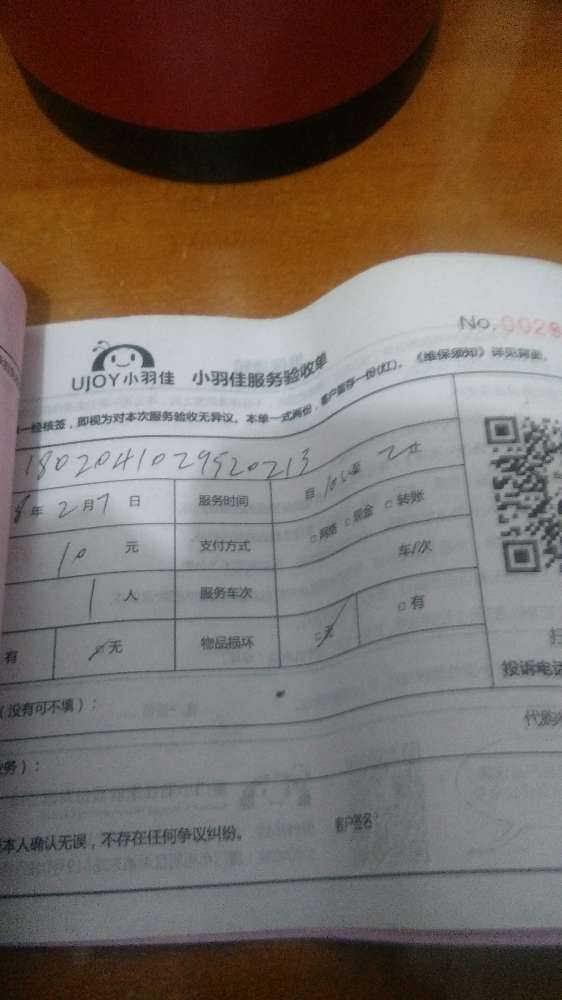 No. 0028
UJOY小羽佳 小羽佳服务验收单
一经核签，即视为对本次服务验收无异议。本单一式两份，客户留存一份(红)。《维保须知》详见背面。
1802041029520213
8年2月7日 服务时间 自 至 止
10元 支付方式 □网络 □现金 □转账
1人 服务车次 车/次
有 □无 物品损坏 □无 □有
投诉电话
（没有可不填）：
代购
业务）：
本人确认无误，不存在任何争议纠纷。 客户签名：